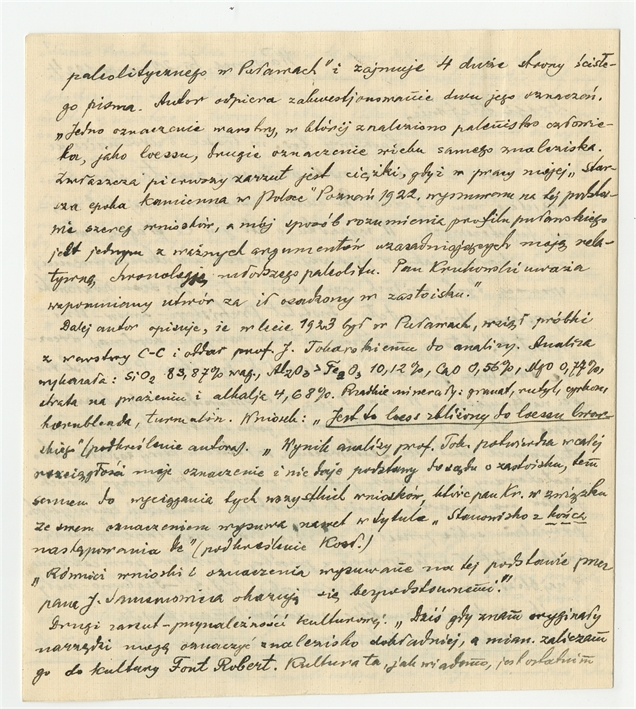 paleolitycznego w Puławach" i zajmuje 4 duże strony ścisłe-
go pisma. Autor odpiera zakwestjonowanie dwu jego oznaczeń.
„Jedno oznaczenie warstwy, w której znaleziono palenisko człowie-
ka, jako loessu, drugie oznaczenie wieku samego znaleziska.
Zwłaszcza pierwszy zarzut jest ciężki, gdyż w pracy mojej „Star-
sza epoka kamienna w Polsce" Poznań 1922, wysunąłem na tej podsta-
wie szereg wniosków, a mój sposób rozumienia profilu puławskiego
jest jednym z ważnych argumentów uzasadniających moją rela-
tywną chronologję młodszego paleolitu. Pan Krukowski uważa
wspomniany utwór za ił osadzony w zastoisku."
Dalej autor opisuje, że w lecie 1923 był w Puławach, wziął próbki
z warstwy C-C i oddał prof. J. Tokarskiemu do analizy. Analiza
wykazała: SiO2 83,87% wag., Al2O3 > Fe2O3 10,12%, CaO 0,56%, MgO 0,77%,
strata na prażeniu i alkalja 4,68%. Rzadkie minerały: granat, rutyl, cyrkon,
hornblenda, turmalin. Wniosek: „Jest to loess zbliżony do loessu
(podkreślenie autora). „Wynik analizy prof. Tok. potwierdza w całej
rozciągłości moje oznaczenie i nie daje podstawy do sądu o zastoisku, tem
samem do wyciągania tych wszystkich wniosków, które pan Kr. w związku
ze swem oznaczeniem wysuwa nawet w tytule „Stanowisko z końca
nastepowania (podkreślenie Kozł.)
„Również wnioski i oznaczenia wysuwane na tej podstawie przez
pana J. Samsonowicza okazują się bezpodstawnemi."
Drugi zarzut - przynależność kulturowej. „Dziś gdy znam oryginały
narzędzi mogę oznaczyć znalezisko dokładniej, a mian. zaliczam
go do kultury Font Robert. Kultura ta, jak wiadomo, jest ostatnim